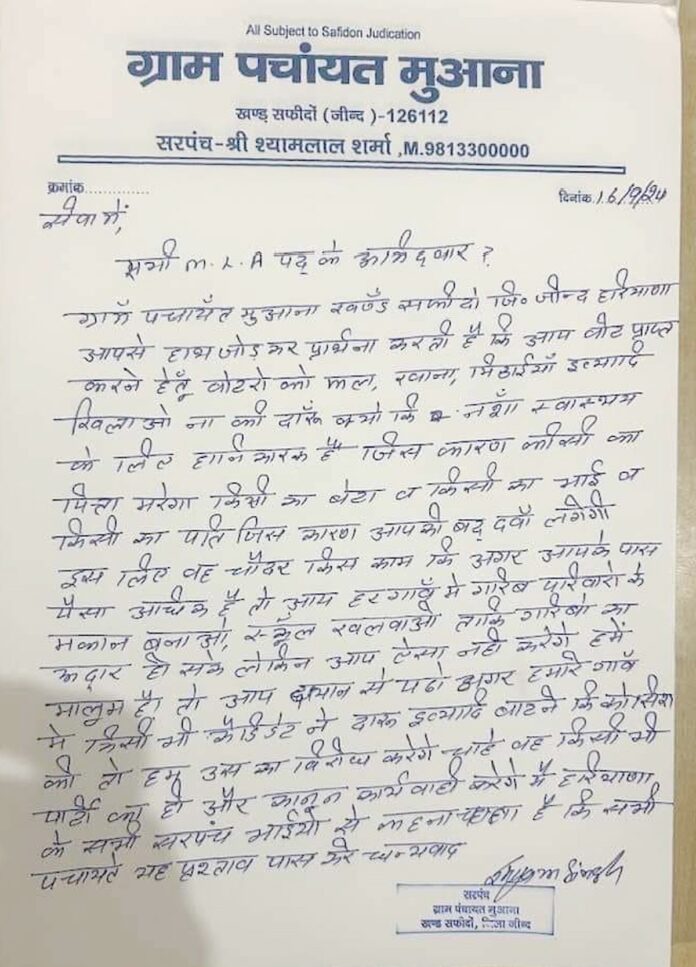 All Subject to Safidon Judication
ग्राम पचांयत मुआना
खण्ड सफीदों (जीन्द )-126112
सरपंच-श्री श्यामलाल शर्मा ,M.9813300000
क्रमांक..............
दिनांक 16/9/24
सेवा में,
सभी M.L.A पद के उमिदवार ?
ग्राम पचायँत मुआना खण्ड सफीदो जि० जीन्द हरियाणा
आपसे हाथ जोड़ कर प्रार्थना करती है कि आप वोट प्राप्त
करने हेतूँ वोटरो को फल, खाना, मिठाईयाँ इत्यादि
खिलाओ ना की दारू क्यो कि नशाँ स्वास्थय
के लिए हानिकारक है जिस कारण कीसी का
पिता मरेगा किसी का बेटा व किसी का भाई व
किसी का पति जिस कारण आपको बद् दवाँ लगेगी
इस लिए वह चौदर किस काम कि अगर आपके पास
पैसा अधिक है तो आप हर गावँ मे गरिब परिवारो के
मकान बनाओ, स्कूँल खुलवाओ ताकि गरिबो का
उद्दार हो सके लेकिन आप ऐसा नही करेगे हमें
मालुम है। तो आप ध्यान से पढो अगर हमारे गावँ
मे किसी भी कैंडिडेट ने दारू इत्यादि बाटने कि कोसिश
की तो हम उस का विरोध करेगे चाहे वह किसी भी
पार्टी का हो और कानून कार्यवाही करेगे मै हरियाणा
के सभी सरपंच भाईयो से कहना चाहता हूँ कि सभी
पचायते यह प्रस्ताव पास करे धन्यवाद
सरपंच
ग्राम पंचायत मुआना
खण्ड सफीदों, जिला जीन्द